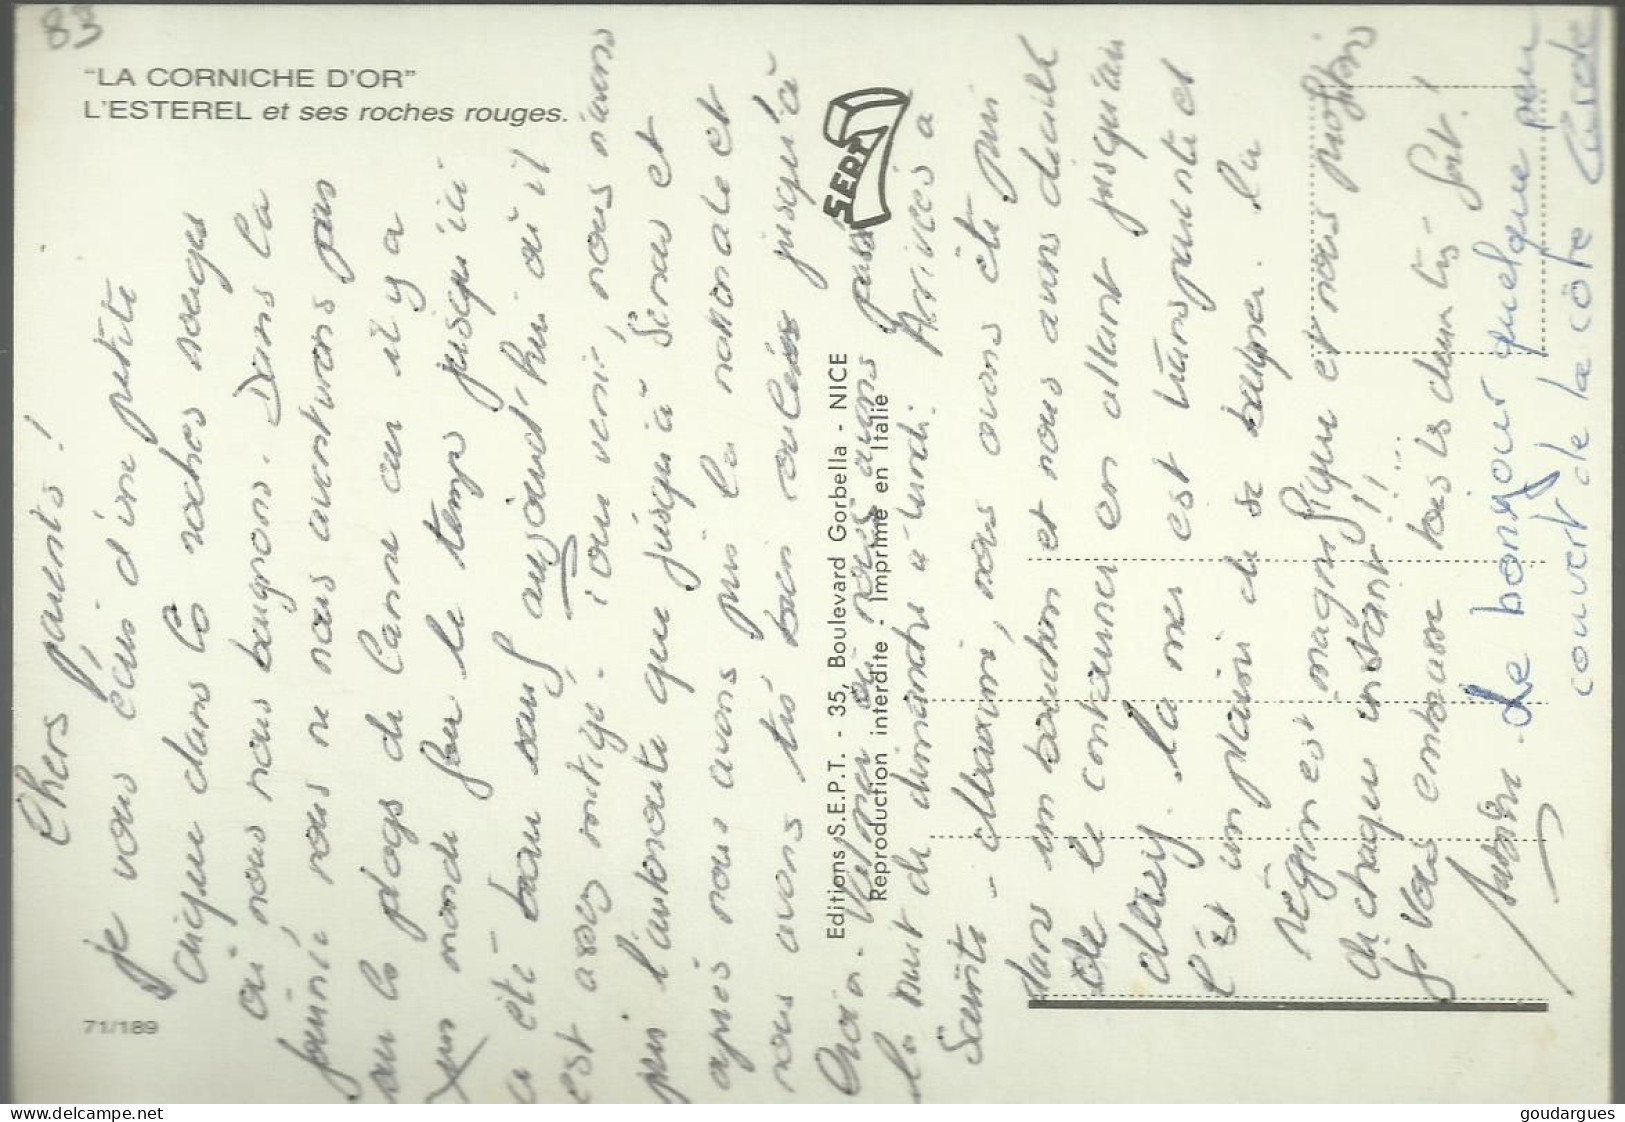 83
"LA CORNICHE D'OR"
L'ESTEREL et ses roches rouges.
71/189
Editions S.E.P.T. - 35, Boulevard Gorbella - NICE
Reproduction interdite - Imprimé en Italie
SEPT 7
Chers parents !
je vous écris d'une petite
crique dans les roches rouges
où nous nous baignons. Dans la
journée nous ne nous aventurons pas
sur les plages de Canne car il y a
un monde fou le temps jusqu'ici
a été beau sauf aujourd'hui où il
est assez mitigé. Pour venir, nous n'avons
pris l'autoroute que jusqu'à Senas et
après nous avons pris la nationale et
nous avons très bien roulés jusqu'à
la nuit de dimanche à lundi. Arrivés à
nous avons été pris
dans un bouchon et nous avons décidé
de le contourner en allant jusqu'au
La mer est transparente et
c'est un plaisir de se baigner. la
région est magnifique et nous profitons
de chaque instant !!...
je vous embrasse tous les deux très fort !
Le bonjour quelque peu
couvert de la côte